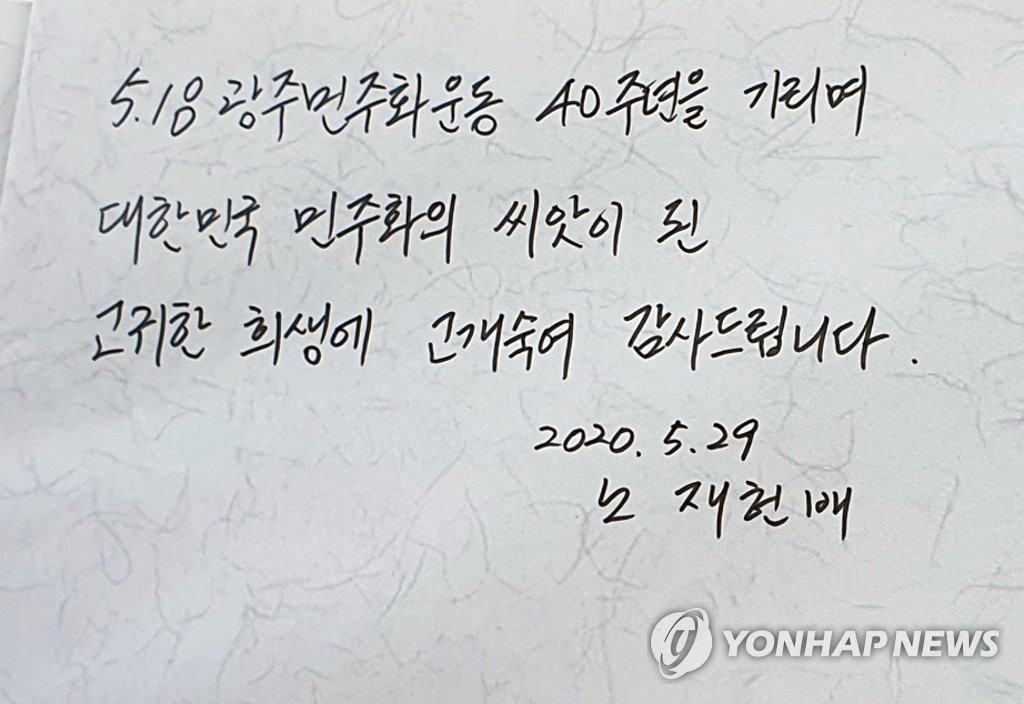 5.18 광주민주화운동 40주년을 기리며
대한민국 민주화의 씨앗이 된
고귀한 희생에 고개숙여 감사드립니다.
2020. 5. 29
노 재헌 배
YONHAP NEWS